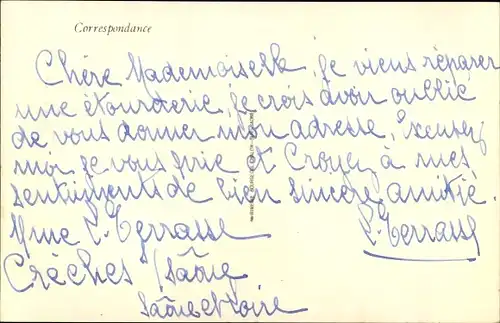 Correspondance
Chère Mademoiselle, je viens réparer
une étourderie, je crois avoir oublié
de vous donner mon adresse, Excusez
moi je vous prie et Croyez à mes
sentiments de bien sincère amitié.
Mme L. Terrasse L. Terrasse
Crèches /Saône
Saône et Loire